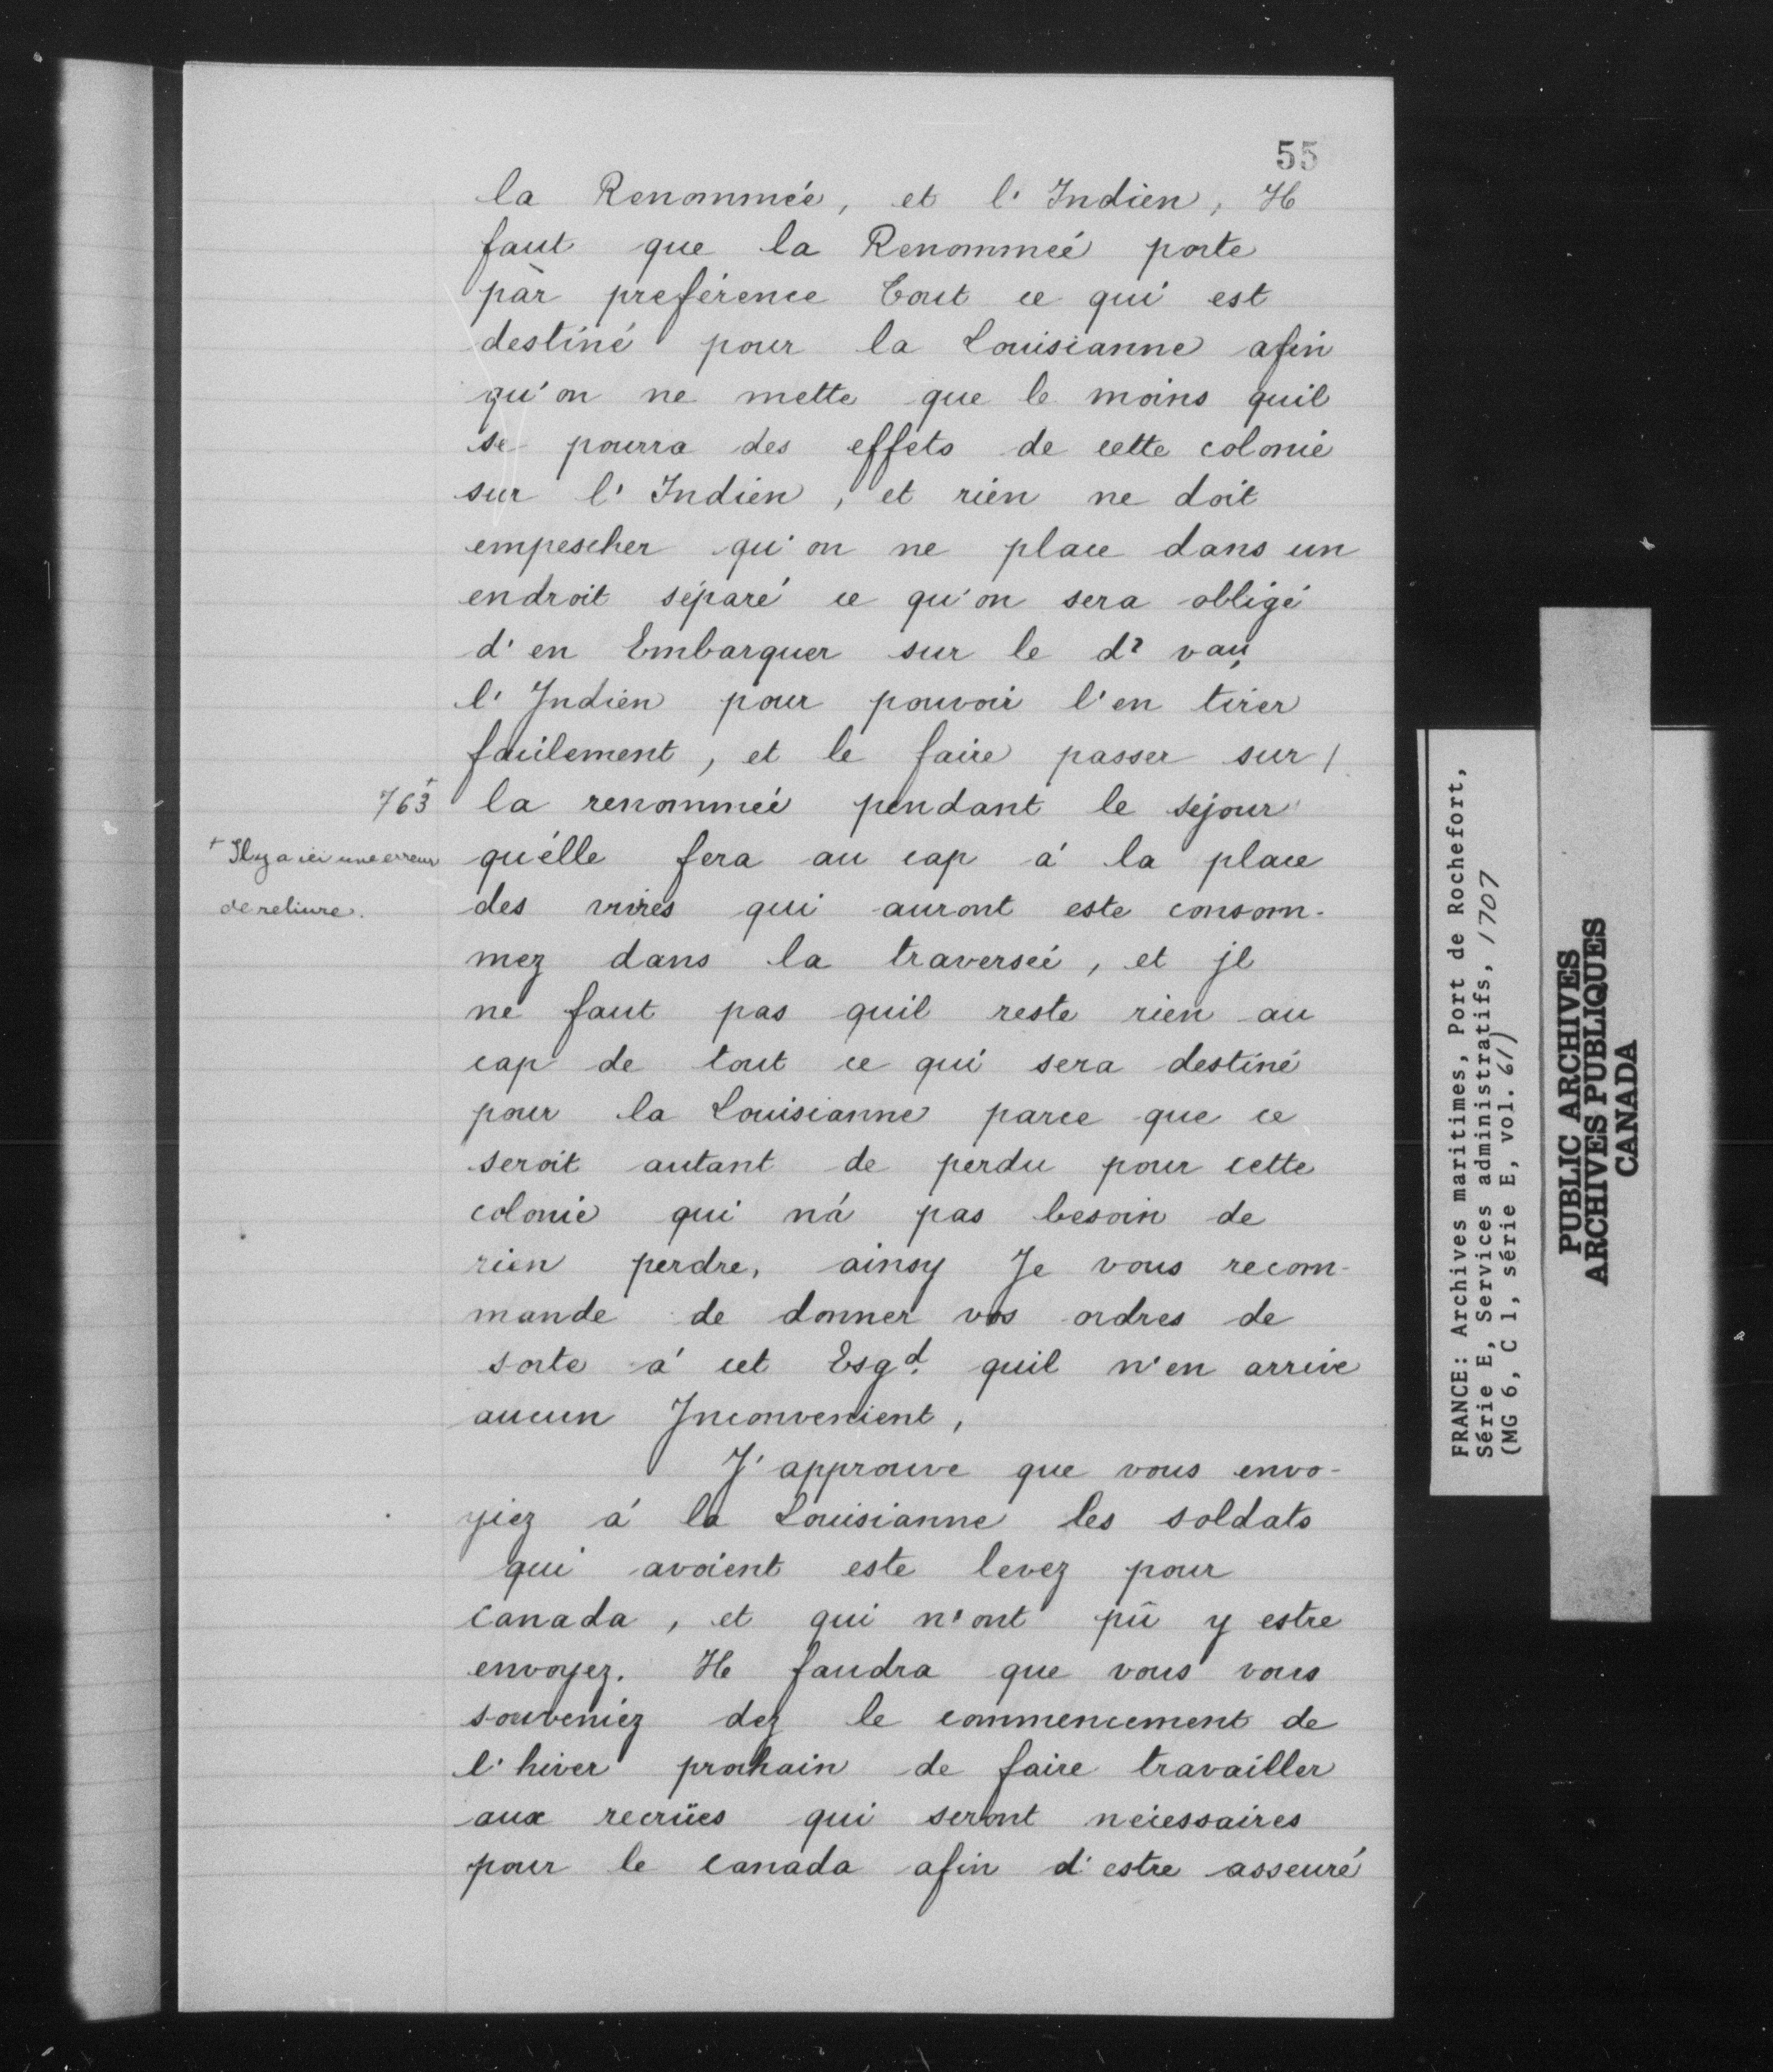 55
la Renommée, et l'Indien, Il
faut que la Renommeé porte
par preférence tout ce qui est
destiné pour la Louisianne afin
qu'on ne mette que le moins quil
se pourra des effets de cette colonie
sur l'Indien, et rien ne doit
empescher qu'on ne place dans un
endroit séparé ce qu'on sera obligé
d'en Embarquer sur le dt vau
l'Indien pour pouvoir l'en tirer
facilement, et le faire passer sur /
763+ la renommée pendant le sejour
+ Il y a ici une erreur
de reliure.
qu'elle fera au cap á la place
des vivres qui auront este consom-
mez dans la traversée, et jl
ne faut pas quil reste rien au
cap de tout ce qui sera destiné
pour la Louisianne parce que ce
seroit autant de perdu pour cette
colonie qui n'á pas besoin de
rien perdre, ainsy Je vous recom-
mande de donner vos ordres de
sorte á cet Esgd. quil n'en arrive
aucun Inconvenient,
J'approuve que vous envo-
yiez á la Louisianne les soldats
qui avoient este levez pour
Canada, et qui n'ont pû y estre
envoyez. Il faudra que vous vous
souveniez dez le commencement de
l'hiver prochain de faire travailler
aux recrües qui seront nécessaires
pour le Canada afin d'estre asseuré
FRANCE: Archives maritimes, Port de Rochefort,
Série E, Services administratifs, 1707
(MG 6, C 1, série E, vol. 61)
PUBLIC ARCHIVES
ARCHIVES PUBLIQUES
CANADA